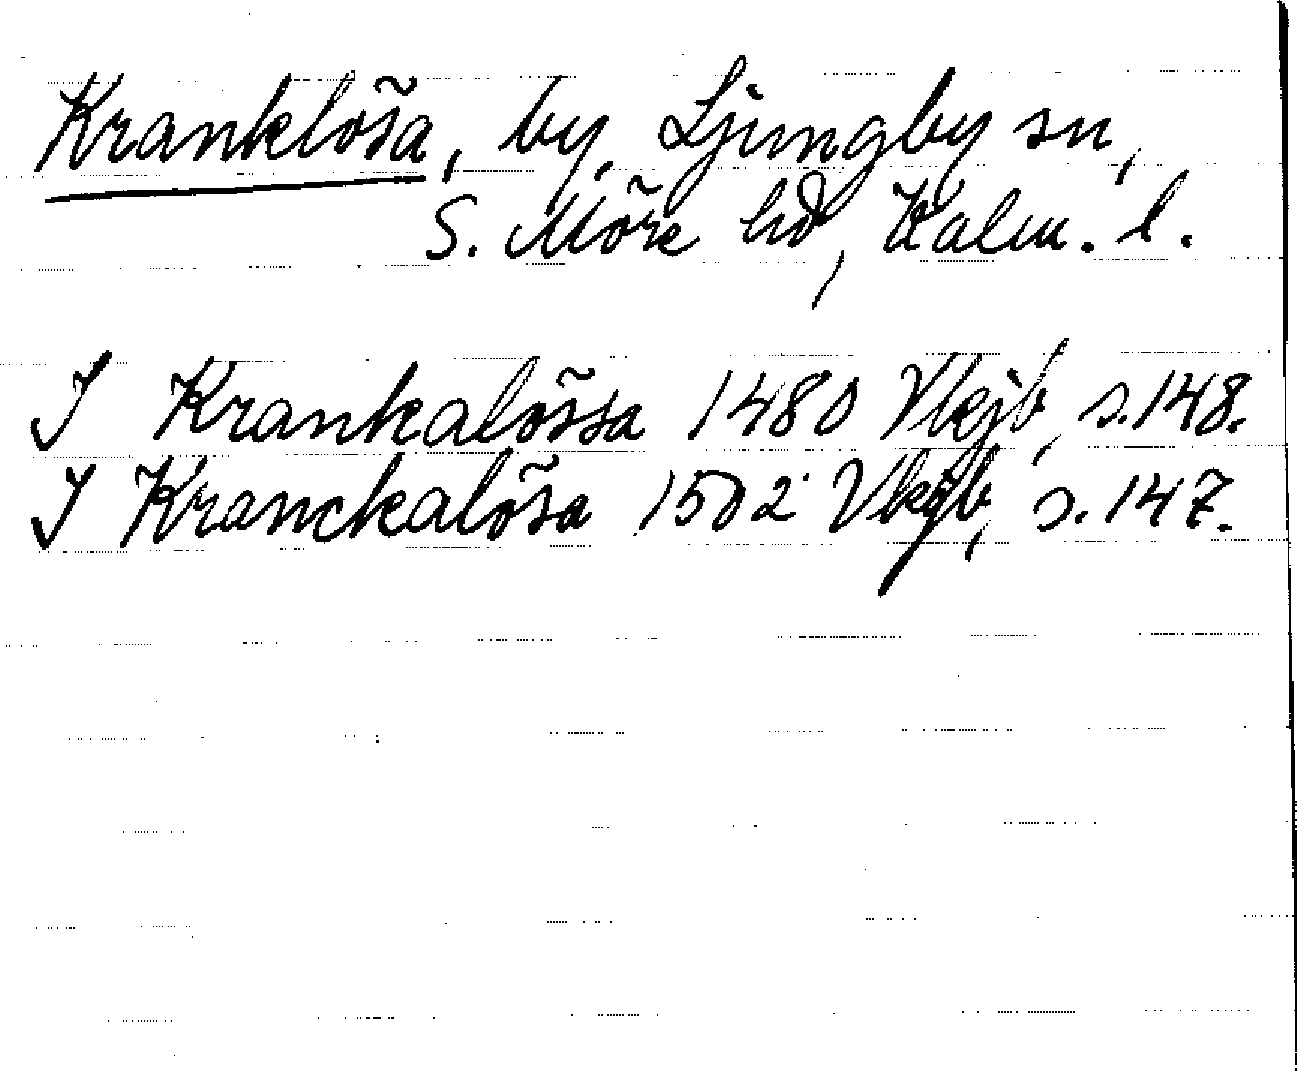 Kranklösa, by, Ljungby sn,
S. Möre hd, Kalm. l.
I Krankalössa 1480 Vkjb, s. 148.
I Kranckalösa 1502 Vkjb, s. 147.